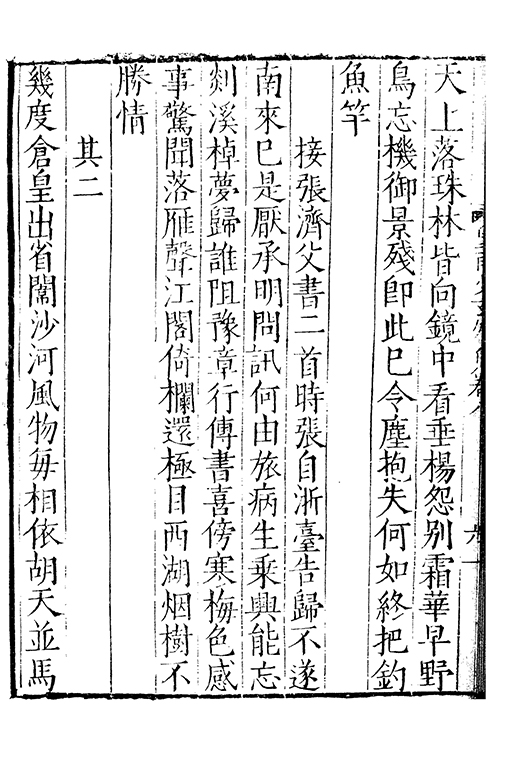 天上落珠林皆向鏡中看垂楊怨别霜華早野
鳥忘機御景殘卽此已令塵抱失何如終把釣
魚竿
接張濟父書二首時張自浙臺告歸不遂
南來已是厭承明問訊何由旅病生乘興能忘
剡溪棹夢歸誰阻豫章行傳書喜傍寒梅色感
事驚聞落雁聲江閣倚欄還極目西湖烟樹不
勝情
其二
幾度倉皇出省闈沙河風物每相依胡天並馬